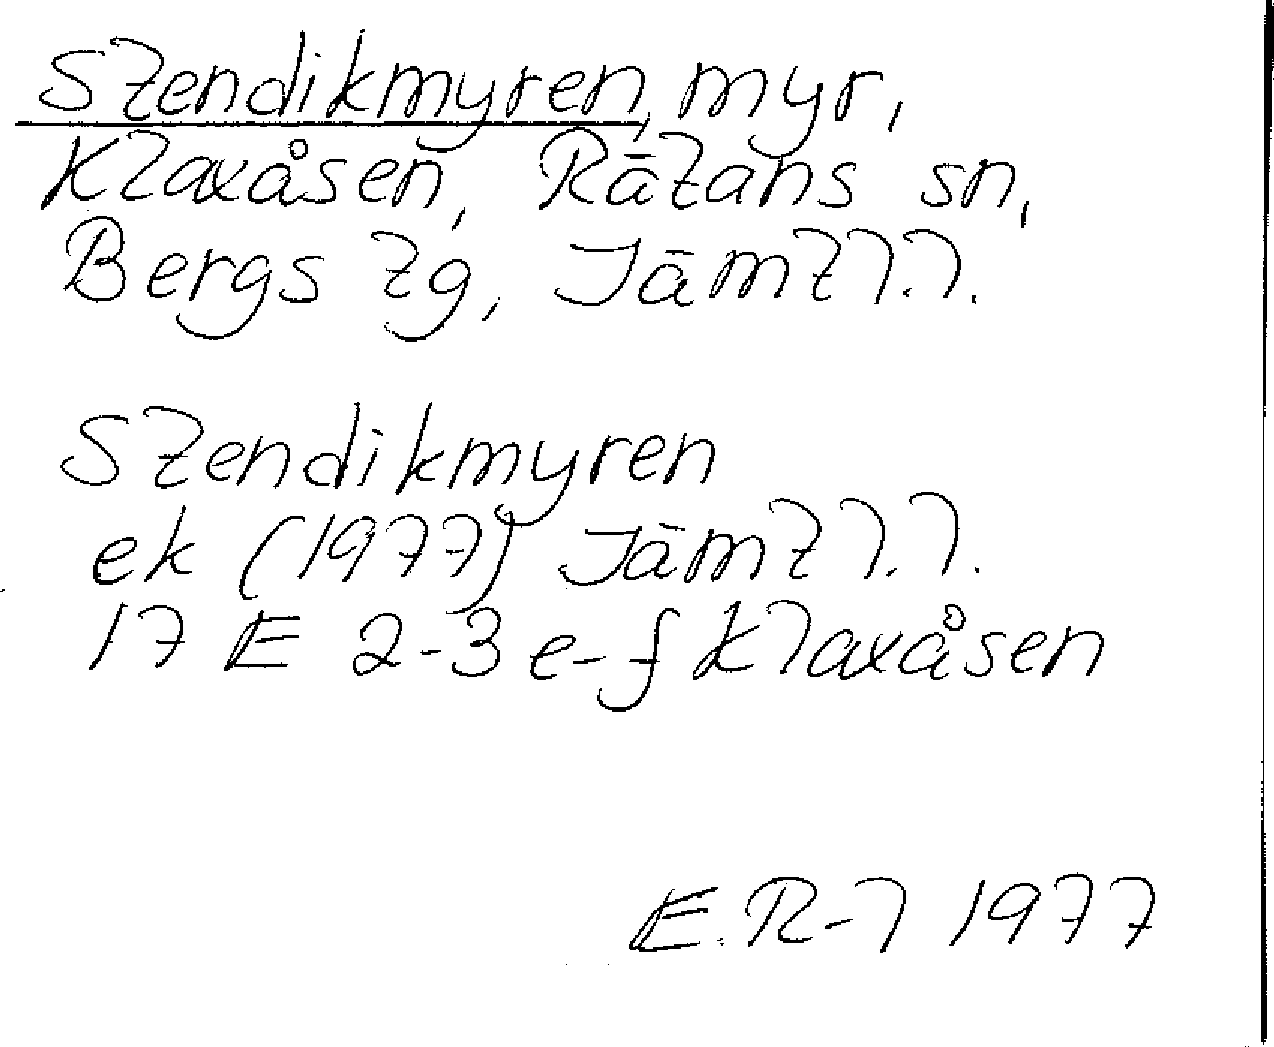 Stendikmyren, myr,
Klaxåsen, Rätans sn,
Bergs tg, Jämtl.l.
Stendikmyren
ek (1977) Jämtl.l.
17 E 2-3 e-f Klaxåsen
E.R-l 1977